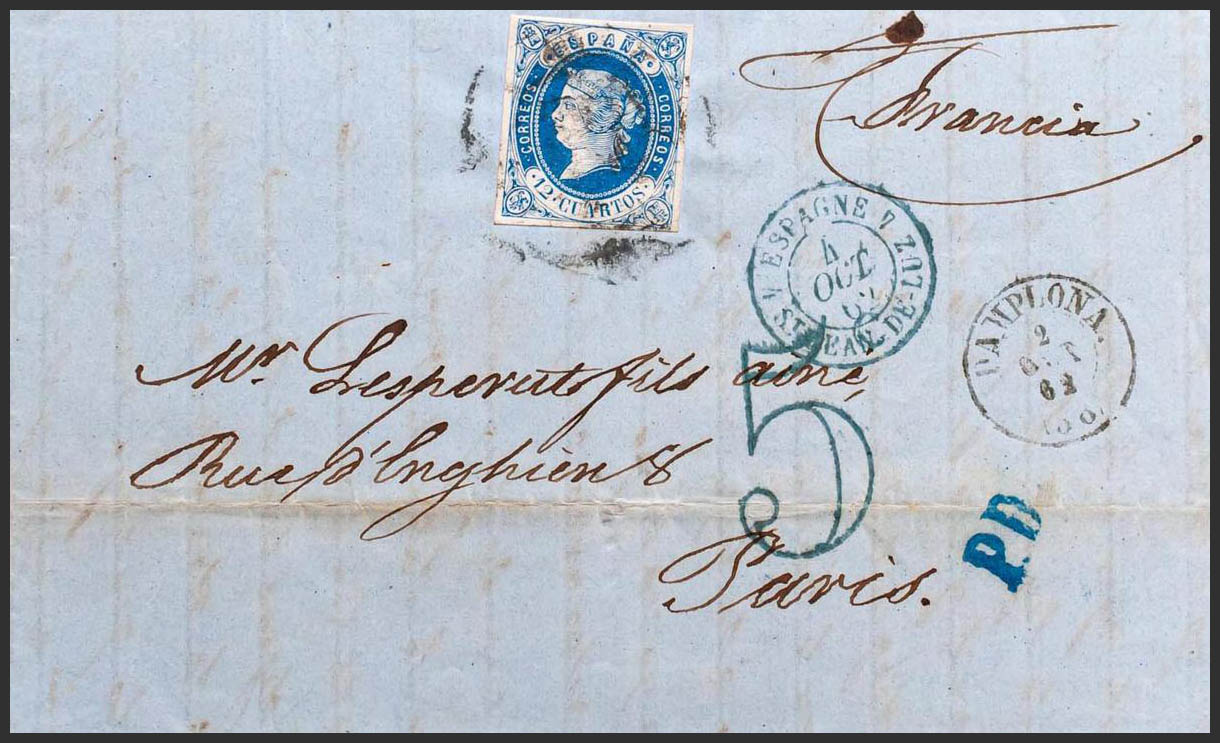 ESPAÑA
CORREOS
CORREOS
12 CUARTOS
Francia
ESPAGNE 7
4
OCT
62
ST JEAN-DE-LUZ
PAMPLONA.
2
OCT
62
5
Mr. Lesperut fils ainé,
Rue d'Enghien 8
Paris.
P.D